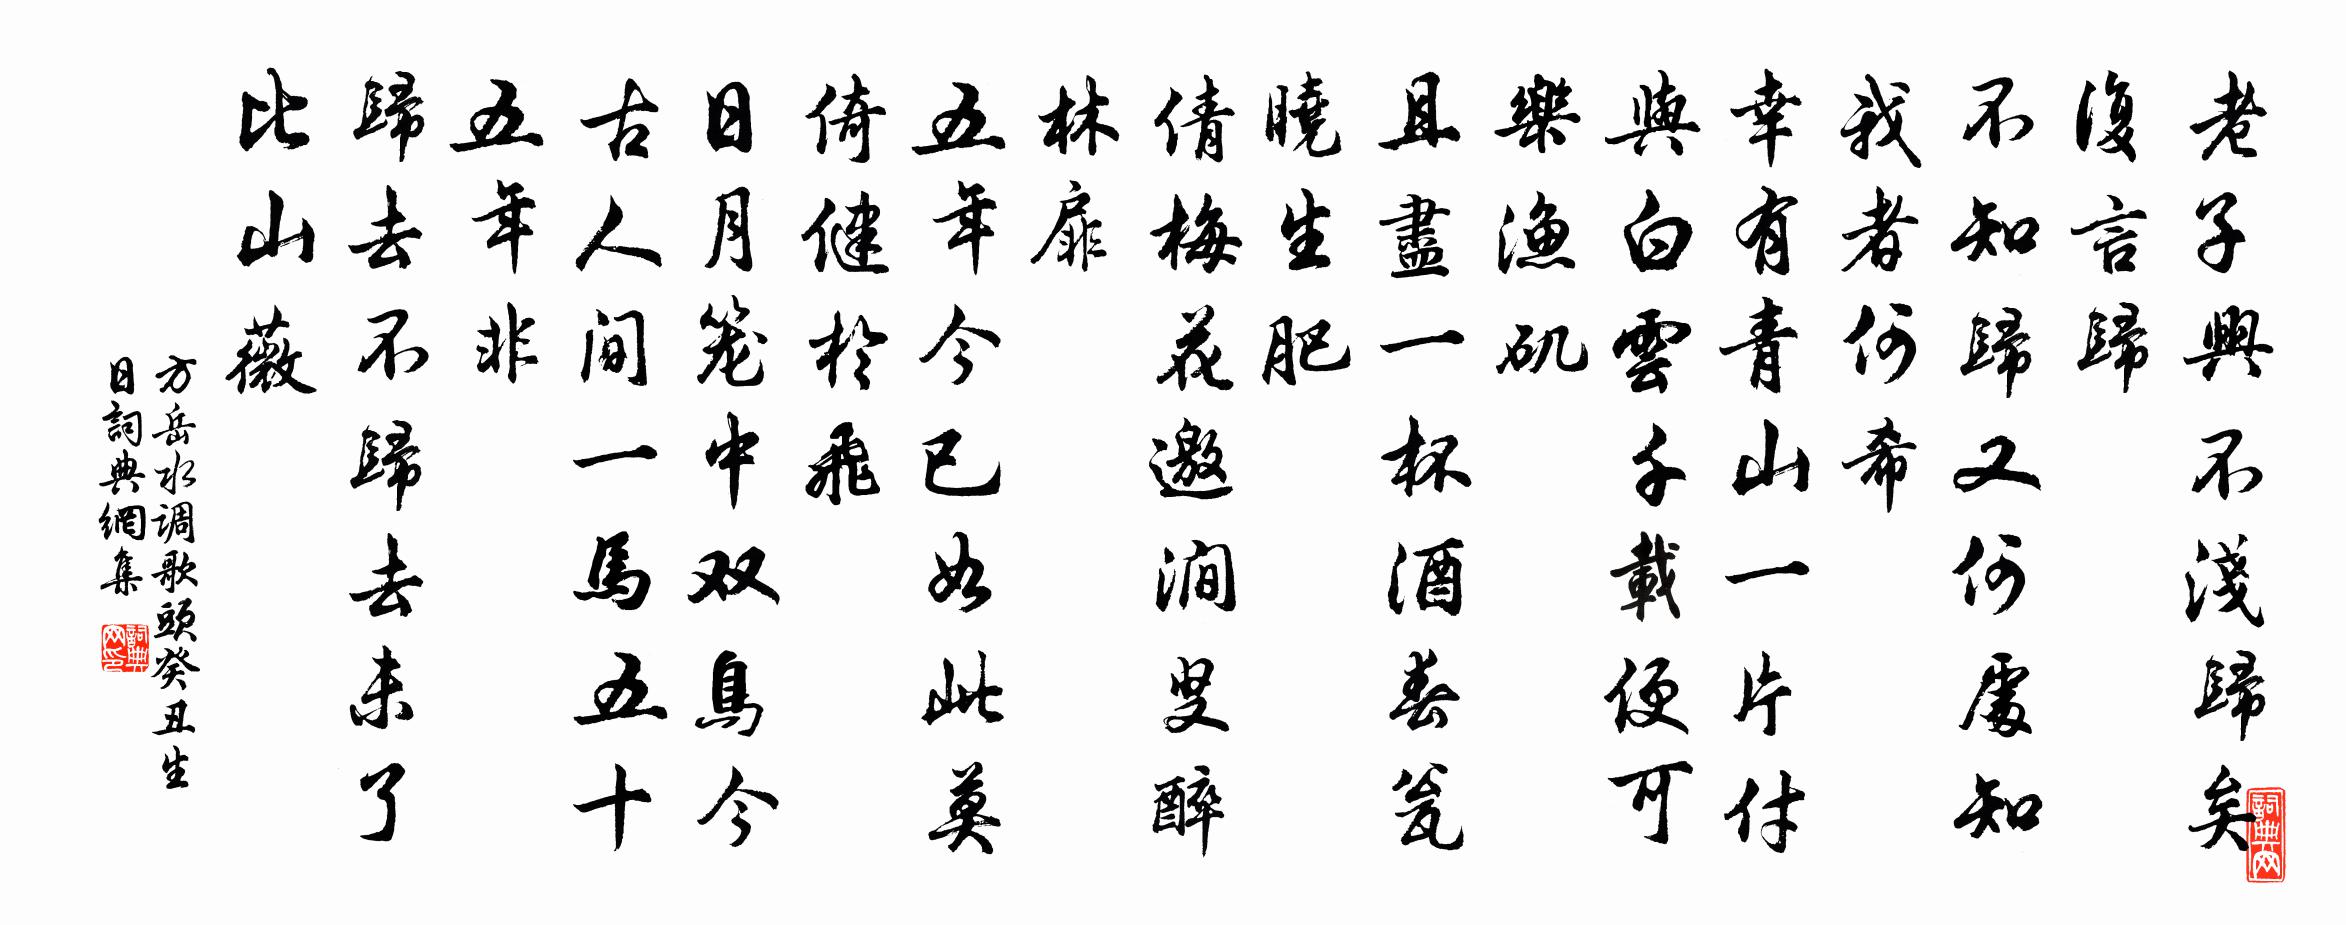 老子興不淺歸矣
復言歸
不知歸又何處知
我者何希
幸有青山一片付
與白雲千載便可
樂漁矶
且盡一杯酒春瓮
曉生肥
倩梅花邀澗叟醉
林扉
五年今已如此莫
倚健於飛
日月笼中双鳥今
古人间一馬五十
五年非
歸去不歸去未了
比山薇
方岳水调歌頭癸丑生
日詞典網集
詞典网
詞典网印